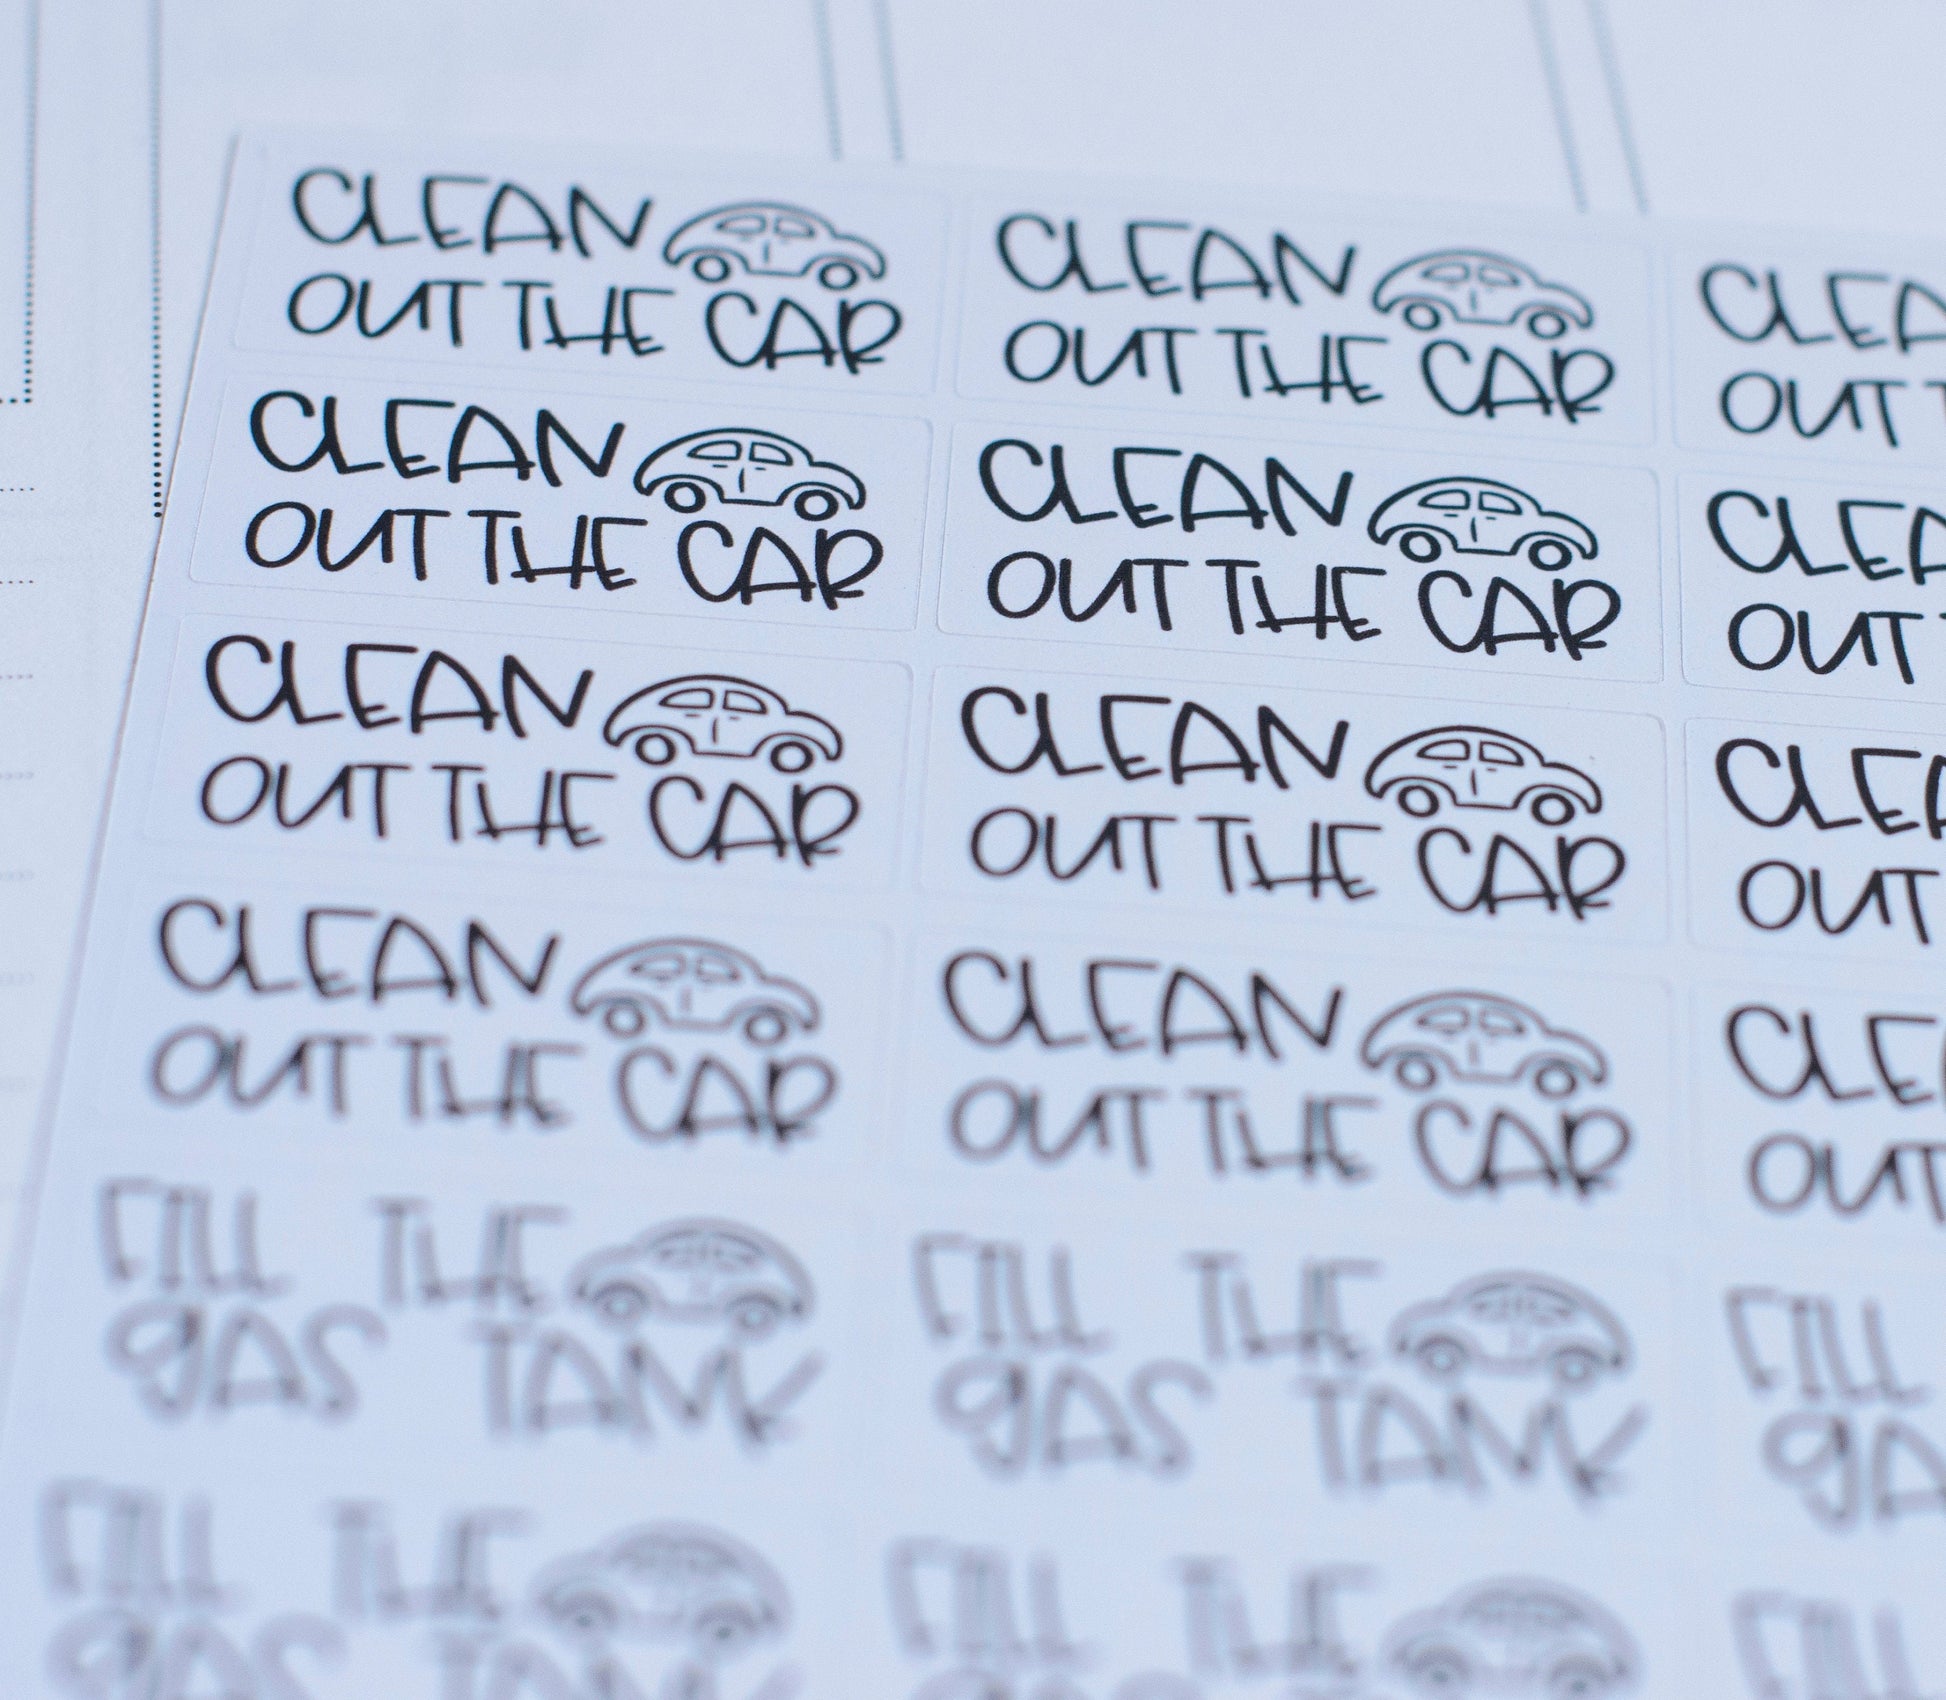 CLEAN
OUT THE CAR
CLEAN
OUT THE CAR
CLEA
OUT T
CLEAN
OUT THE CAR
CLEAN
OUT THE CAR
CLEA
OUT T
CLEAN
OUT THE CAR
CLEAN
OUT THE CAR
CLEA
OUT
CLEAN
OUT THE CAR
CLEAN
OUT THE CAR
CLE
OUT
FILL THE
gAS TANK
FILL THE
gAS TANK
FILL
gA
FILL THE
gAS TANK
FILL THE
FILL